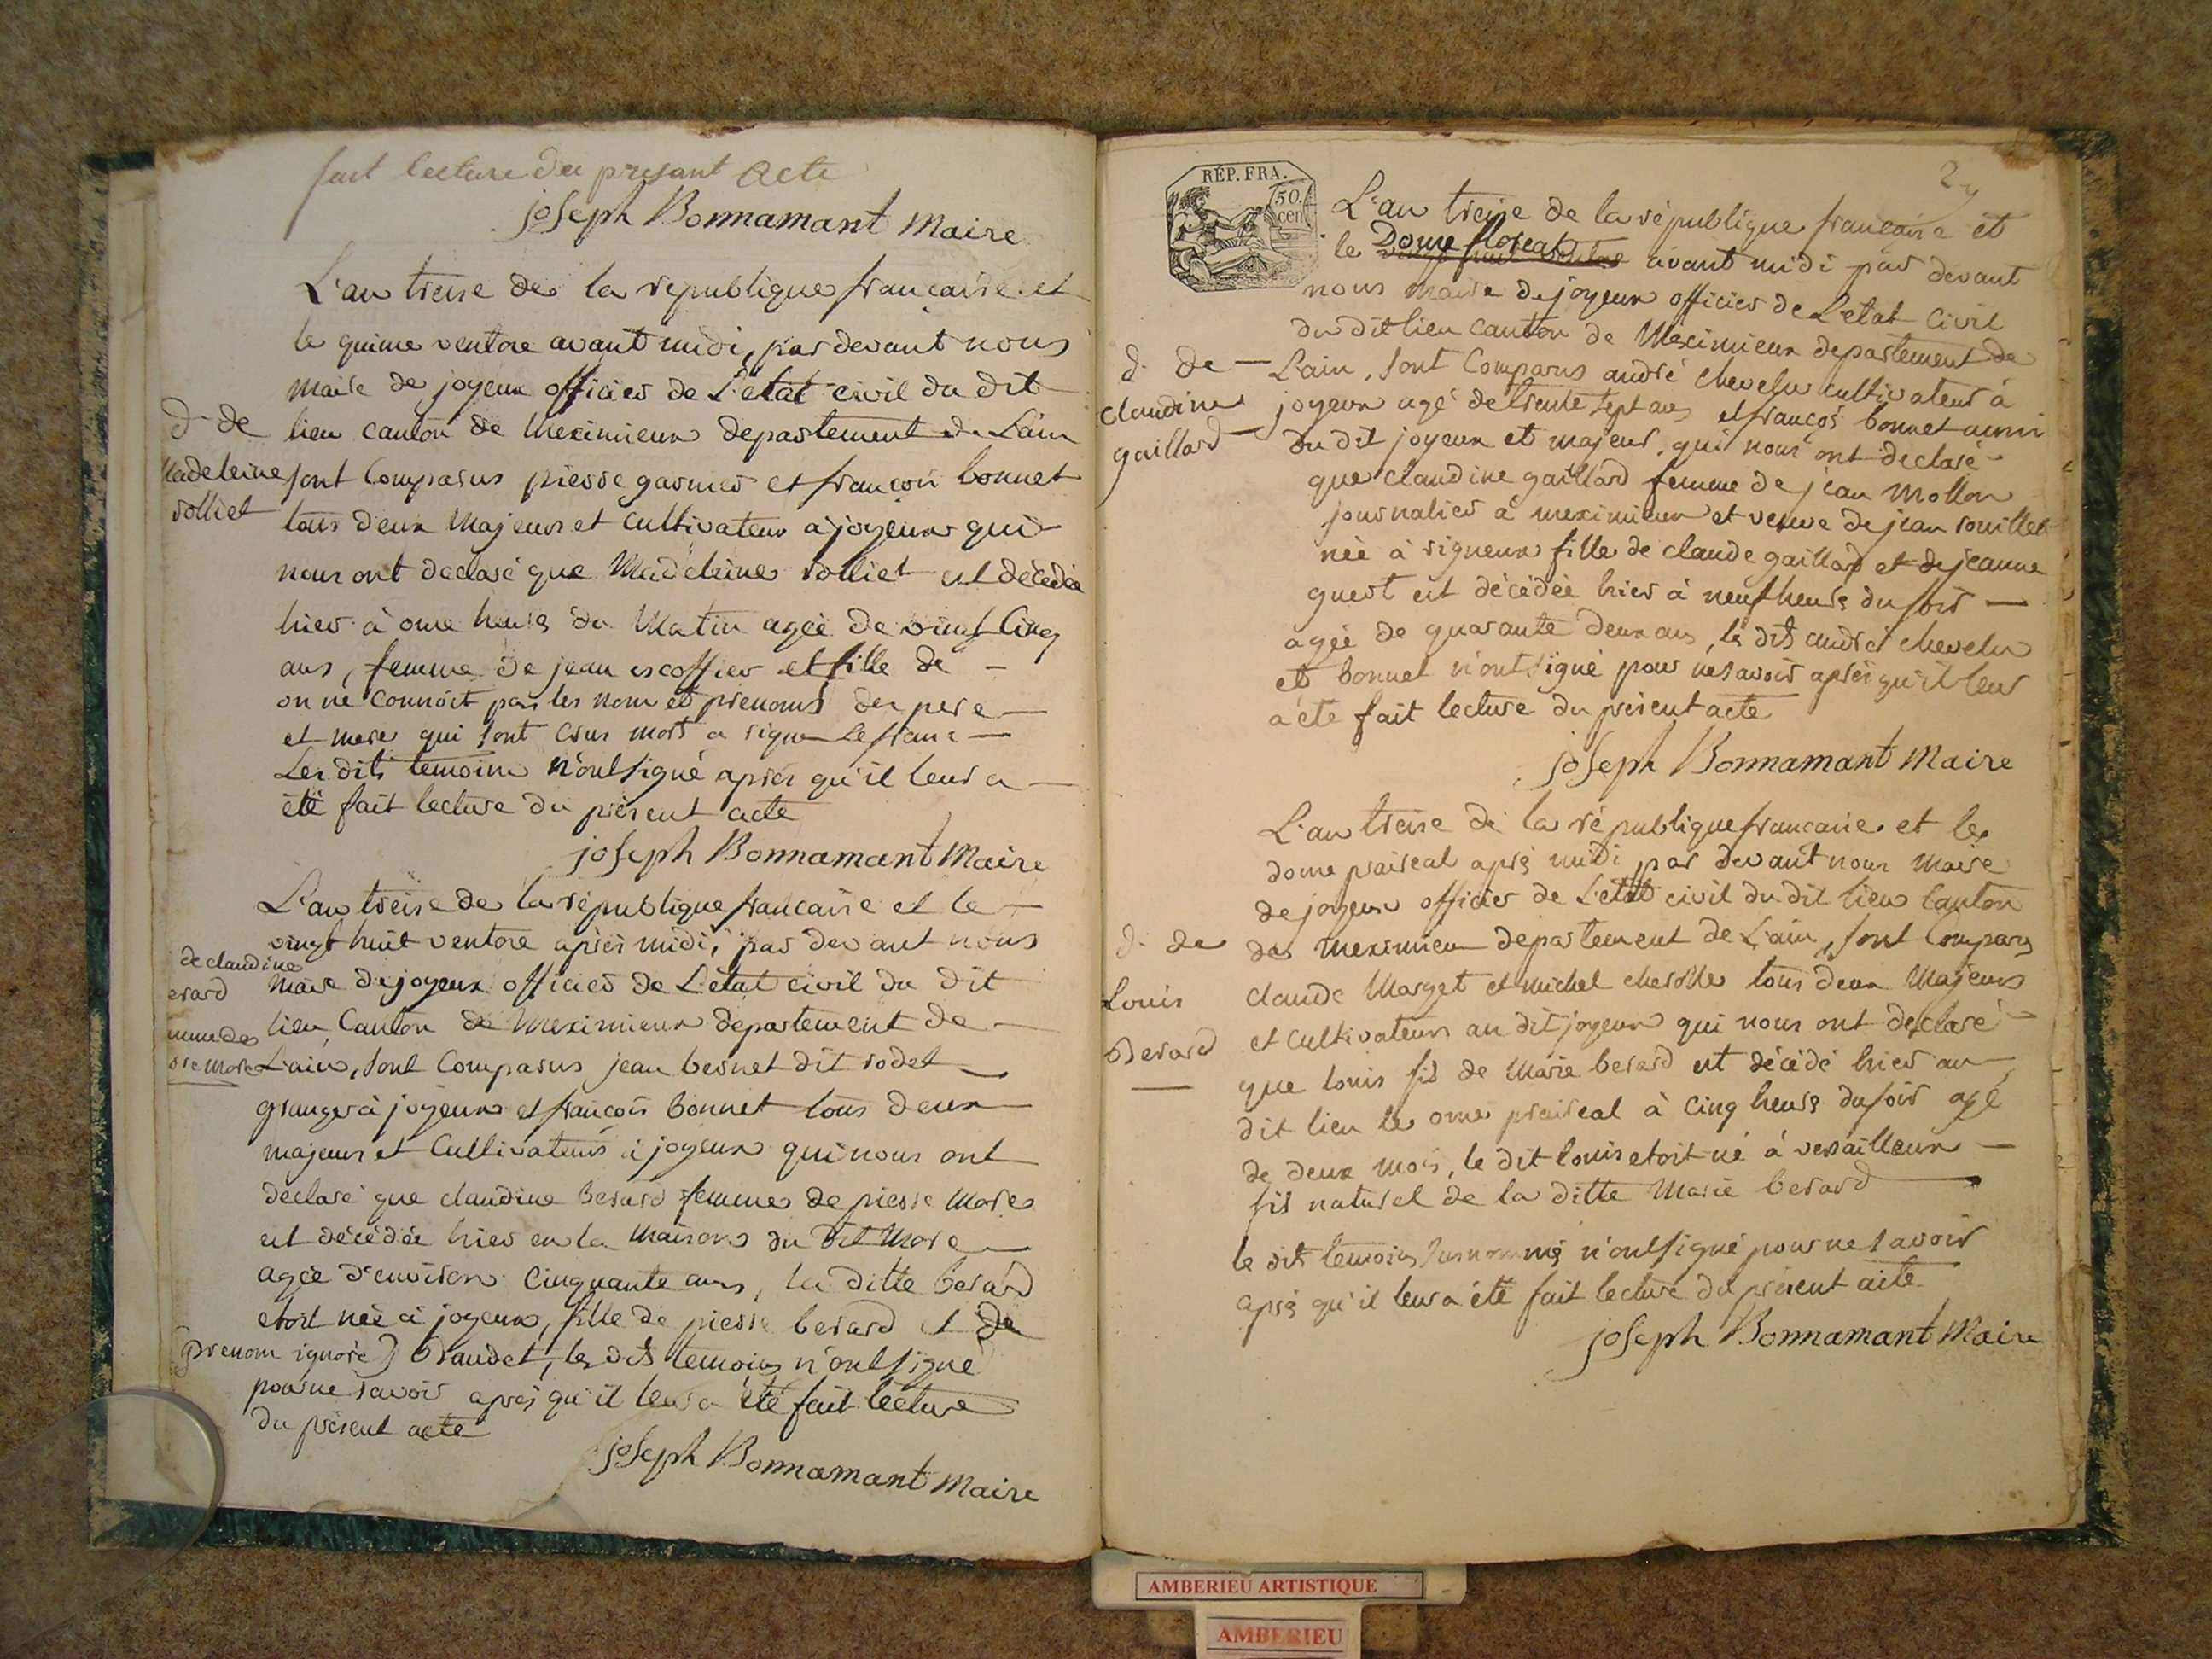 fait lecture du presant Acte
joseph Bonnamant Maire
L'an treise de la republique francaise et
le quinse ventose avant midi, par devant nous
maire de joyeux officier de L'etat civil du dit
d. de
lieu canton de meximieux departement de Lain
Madeleine
sont Comparus pierre garnier et francois bonnet
rolliet
tous deux Majeurs et Cultivateurs a joyeux qui
nous ont declaré que Madeleine rolliet est décédée
hier à onse heures du Matin agée de vingt Cinq
ans, femme de jean escoffier et fille de
on ne connoit pas les nom et prenoms des pere
et mere qui sont
Les dits temoins n'ont signé après qu'il leur a
été fait lecture du présent acte
joseph Bonnamant Maire
L'an treise de la république francaise et le
vingt huit ventose après midi, par devant nous
de claudine
Maire de joyeux officier de L'etat civil du dit
erard
lieu, Canton de Meximieux departement de
mme de
L'ain, sont Comparus jean bernet dit rodet
rre More
granger à joyeux et francois Bonnet tous deux
majeurs et Cultivateurs à joyeux qui nous ont
declaré que claudine Berard femme de pierre More
est décédée hier en la Maison du dit More
agée d'environ Cinquante ans, la ditte berard
etoit née à joyeux, fille de pierre berard et de
(prenom ignoré) Braudet, les dits temoins n'ont signé
pour ne savoir après qu'il leur a été fait lecture
du présent acte
joseph Bonnamant Maire
RÉP. FRA.
50.
cen
29
L'an treise de la république francaise et
le Douse floreal avant midi par devant
nous Maire de joyeux officier de L'etat Civil
du dit lieu canton de Meximieux departement de
d. de
Lain, sont Comparus andré chevelu cultivateur à
claudine
joyeux agé de trente sept ans et françois bonnet aussi
gaillard
du dit joyeux et majeur, qui nous ont declaré
que claudine gaillard femme de jean Mollon
journalier à meximieux et veuve de jean rouillet
née à rigneux fille de claude gaillard et de jeanne
guest est décédée hier à neuf heures du soir
agée de quarante deux ans, les dits andré chevelu
et bonnet n'ont signé pour ne savoir après qu'il leur
a été fait lecture du présent acte
joseph Bonnamant Maire
L'an treise de la république francaise et le
douse praireal après midi par devant nous Maire
de joyeux officier de L'etat civil du dit lieu Canton
d. de
de Meximieux departement de L'ain, sont Comparus
Louis
claude Marget et Michel tous deux Majeurs
Berard
et Cultivateurs au dit joyeux qui nous ont declaré
que louis fils de Marie berard est décédé hier au
dit lieu le onse praireal à cinq heures du soir agé
de deux mois, le dit louis etoit né à versailleux
fils naturel de la ditte Marie berard
le dits temoins susnommés n'ont signé pour ne savoir
après qu'il leur a été fait lecture du présent acte
joseph Bonnamant Maire
AMBERIEU ARTISTIQUE
AMBERIEU